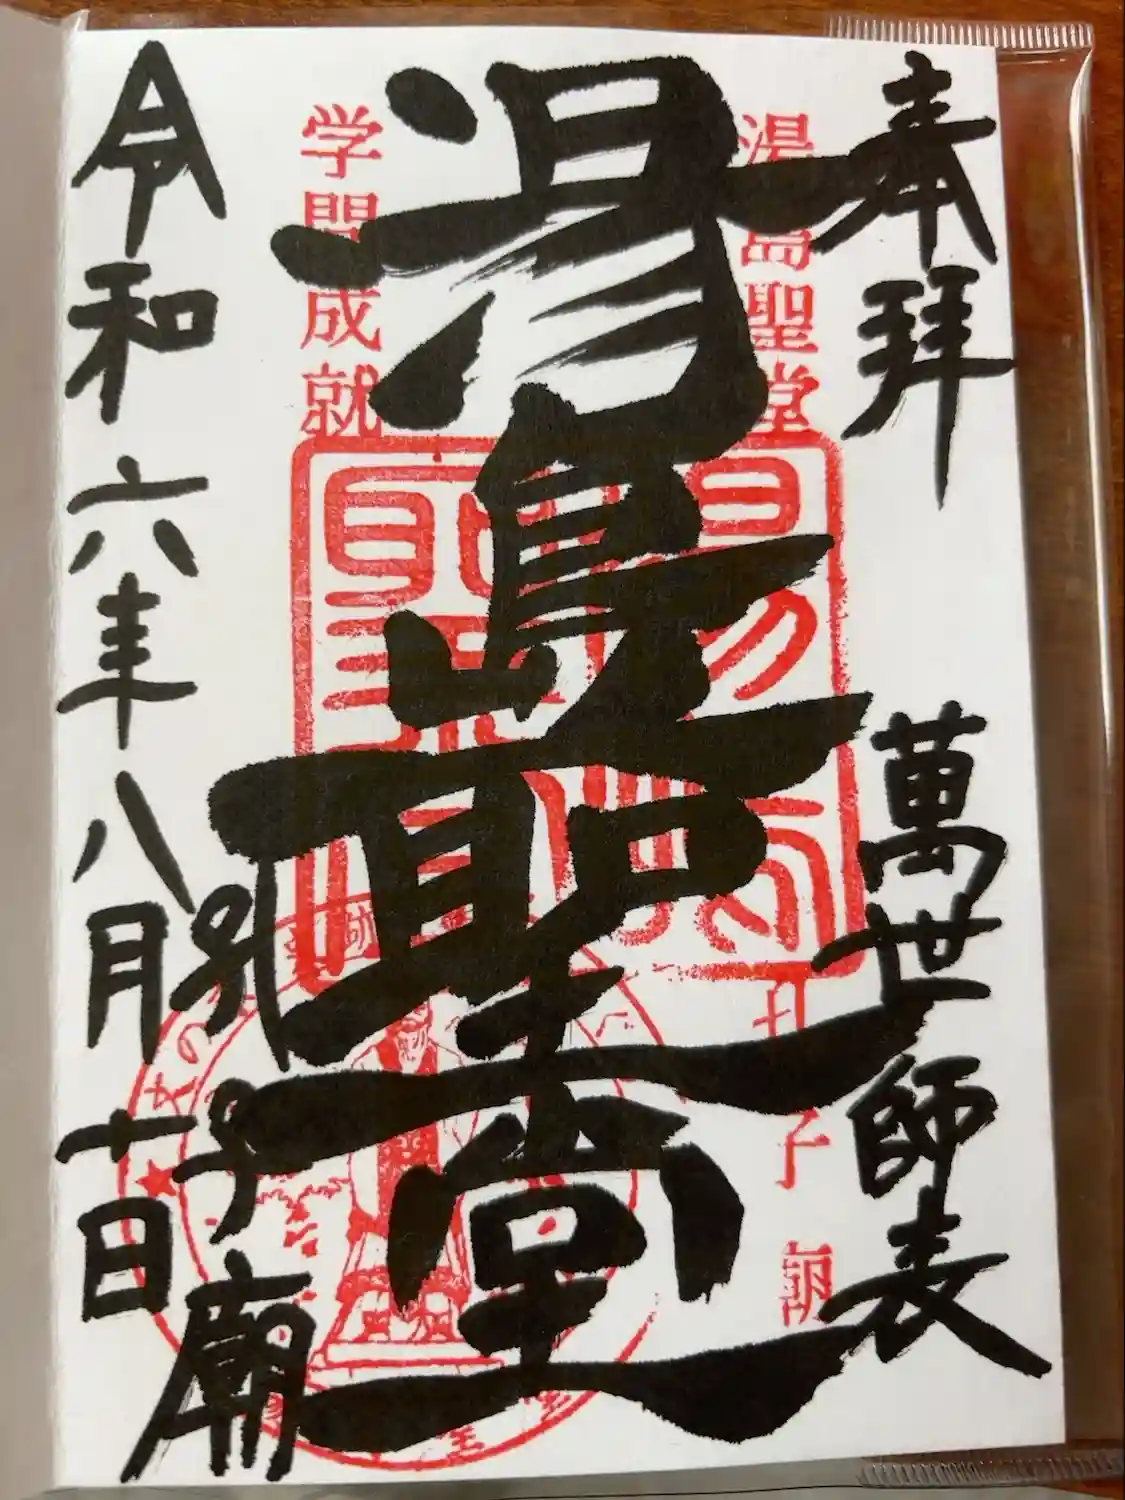 奉拝
萬世師表
湯島聖堂
学問成就
湯島聖堂
孔子廟
令和六年八月十日
孔子廟